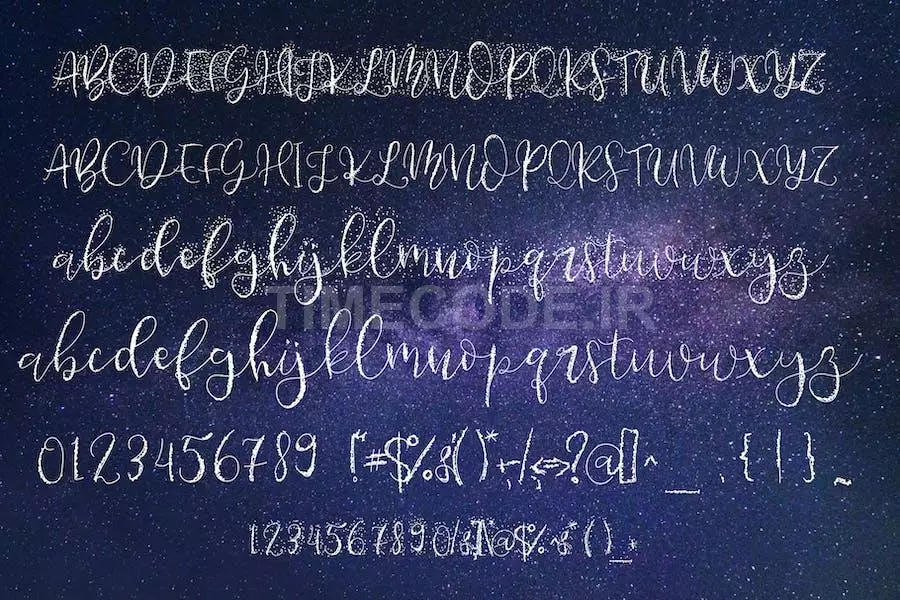 ABCDEFGHIJKLMNOPQRSTUVWXYZ
ABCDEFGHIJKLMNOPQRSTUVWXYZ
abcdefghijklmnopqrstuvwxyz
TIMECODE.IR
abcdefghijklmnopqrstuvwxyz
0123456789 !"#$%&'()*+,-./:;<=>?@[]^_ {|}~
1234567890